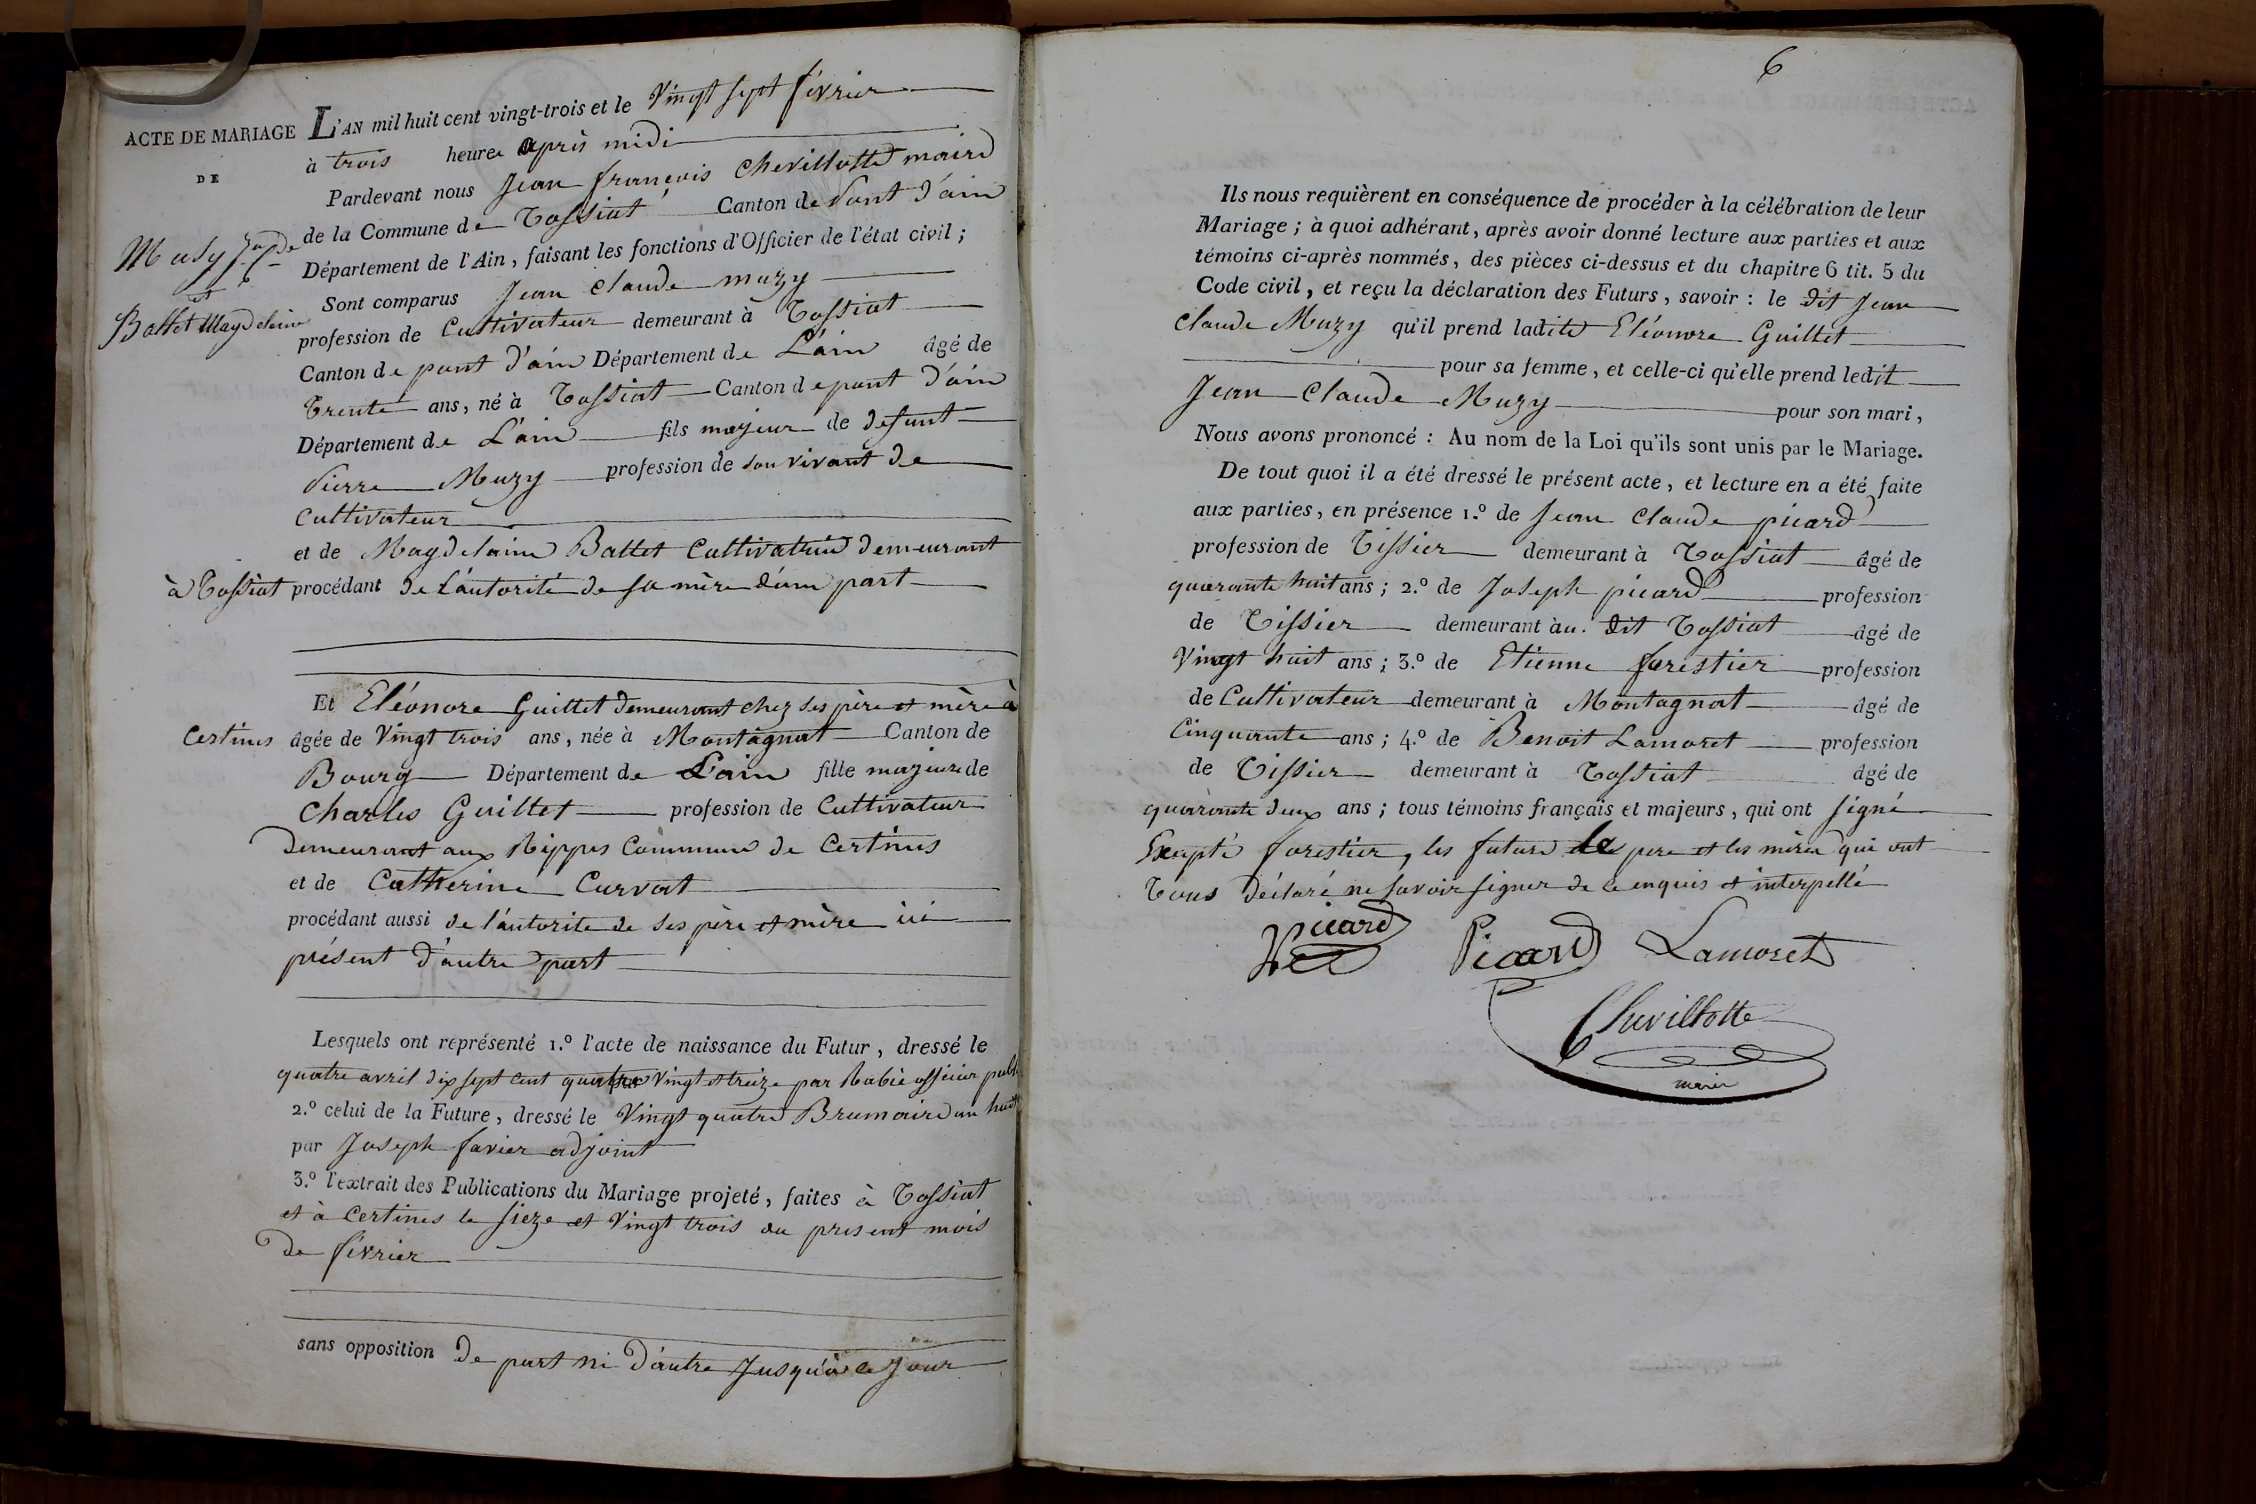 ACTE DE MARIAGE
DE
Musy J. Cde
et
Ballet Magdeleine
L'AN mil huit cent vingt-trois et le vingt sept fevrier
à trois heures après midi
Pardevant nous Jean françois Chevillotte maire
de la Commune de Tossiat Canton de Pont d'ain
Département de l'Ain, faisant les fonctions d'Officier de l'état civil ;
Sont comparus Jean Claude muzy
profession de Cultivateur demeurant à Tossiat
Canton de pont d'ain Département de L'ain âgé de
Trente ans, né à Tossiat Canton de pont d'ain
Département de L'ain fils majeur de defunt
Pierre Muzy profession de son vivant de
Cultivateur
et de Magdelaine Ballet Cultivatrice demeurant
à Tossiat procédant de l'autorité de sa mère d'une part
Et Eléonore Guillet demeurant chez ses père et mère à
Certines âgée de Vingt trois ans, née à Montagnat Canton de
Bourg Département de L'ain fille majeure de
Charles Guillet profession de Cultivateur
demeurant aux Rippes Commune de Certines
et de Catherine Curvat
procédant aussi de l'autorite de ses père et mère ici
présent d'autre part
Lesquels ont représenté 1.º l'acte de naissance du Futur, dressé le
quatre avril dix sept cent quatre vingt et treize par Rabié officier publ
2.º celui de la Future, dressé le Vingt quatre Brumaire an huit
par Joseph favier adjoint
3.º l'extrait des Publications du Mariage projeté, faites à Tossiat
et à Certines le sieze et Vingt trois du present mois
de fevrier
sans opposition de part ni d'autre Jusqu'à ce Jour
6
Ils nous requièrent en conséquence de procéder à la célébration de leur
Mariage ; à quoi adhérant, après avoir donné lecture aux parties et aux
témoins ci-après nommés, des pièces ci-dessus et du chapitre 6 tit. 5 du
Code civil, et reçu la déclaration des Futurs, savoir : le dit Jean
Claude Muzy qu'il prend ladite Eléonore Guillet
pour sa femme, et celle-ci qu'elle prend ledit
Jean Claude Muzy pour son mari,
Nous avons prononcé : Au nom de la Loi qu'ils sont unis par le Mariage.
De tout quoi il a été dressé le présent acte, et lecture en a été faite
aux parties, en présence 1.º de Jean Claude picard
profession de Tissier demeurant à Tossiat âgé de
quarante huit ans ; 2.º de Joseph picard profession
de Tissier demeurant àu. dit Tossiat âgé de
Vingt huit ans ; 3.º de Etienne forestier profession
de Cultivateur demeurant à Montagnat âgé de
Cinquante ans ; 4.º de Benoit Lamoret profession
de Tissier demeurant à Tossiat âgé de
quarante deux ans ; tous témoins français et majeurs, qui ont signé
Excepté forestier, les futurs les pere et les mères qui ont
Tous déclaré ne savoir signer de ce enquis et interpellé
Picard Picard Lamoret
Chevillotte
maire